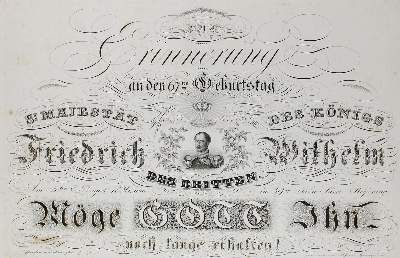 Zur
Erinnerung
an den 67ten Geburtstag
Sr. MAJESTÄT DES KÖNIGS
Friedrich Wilhelm
DES DRITTEN
Möge GOTT Ihn
noch lange erhalten!